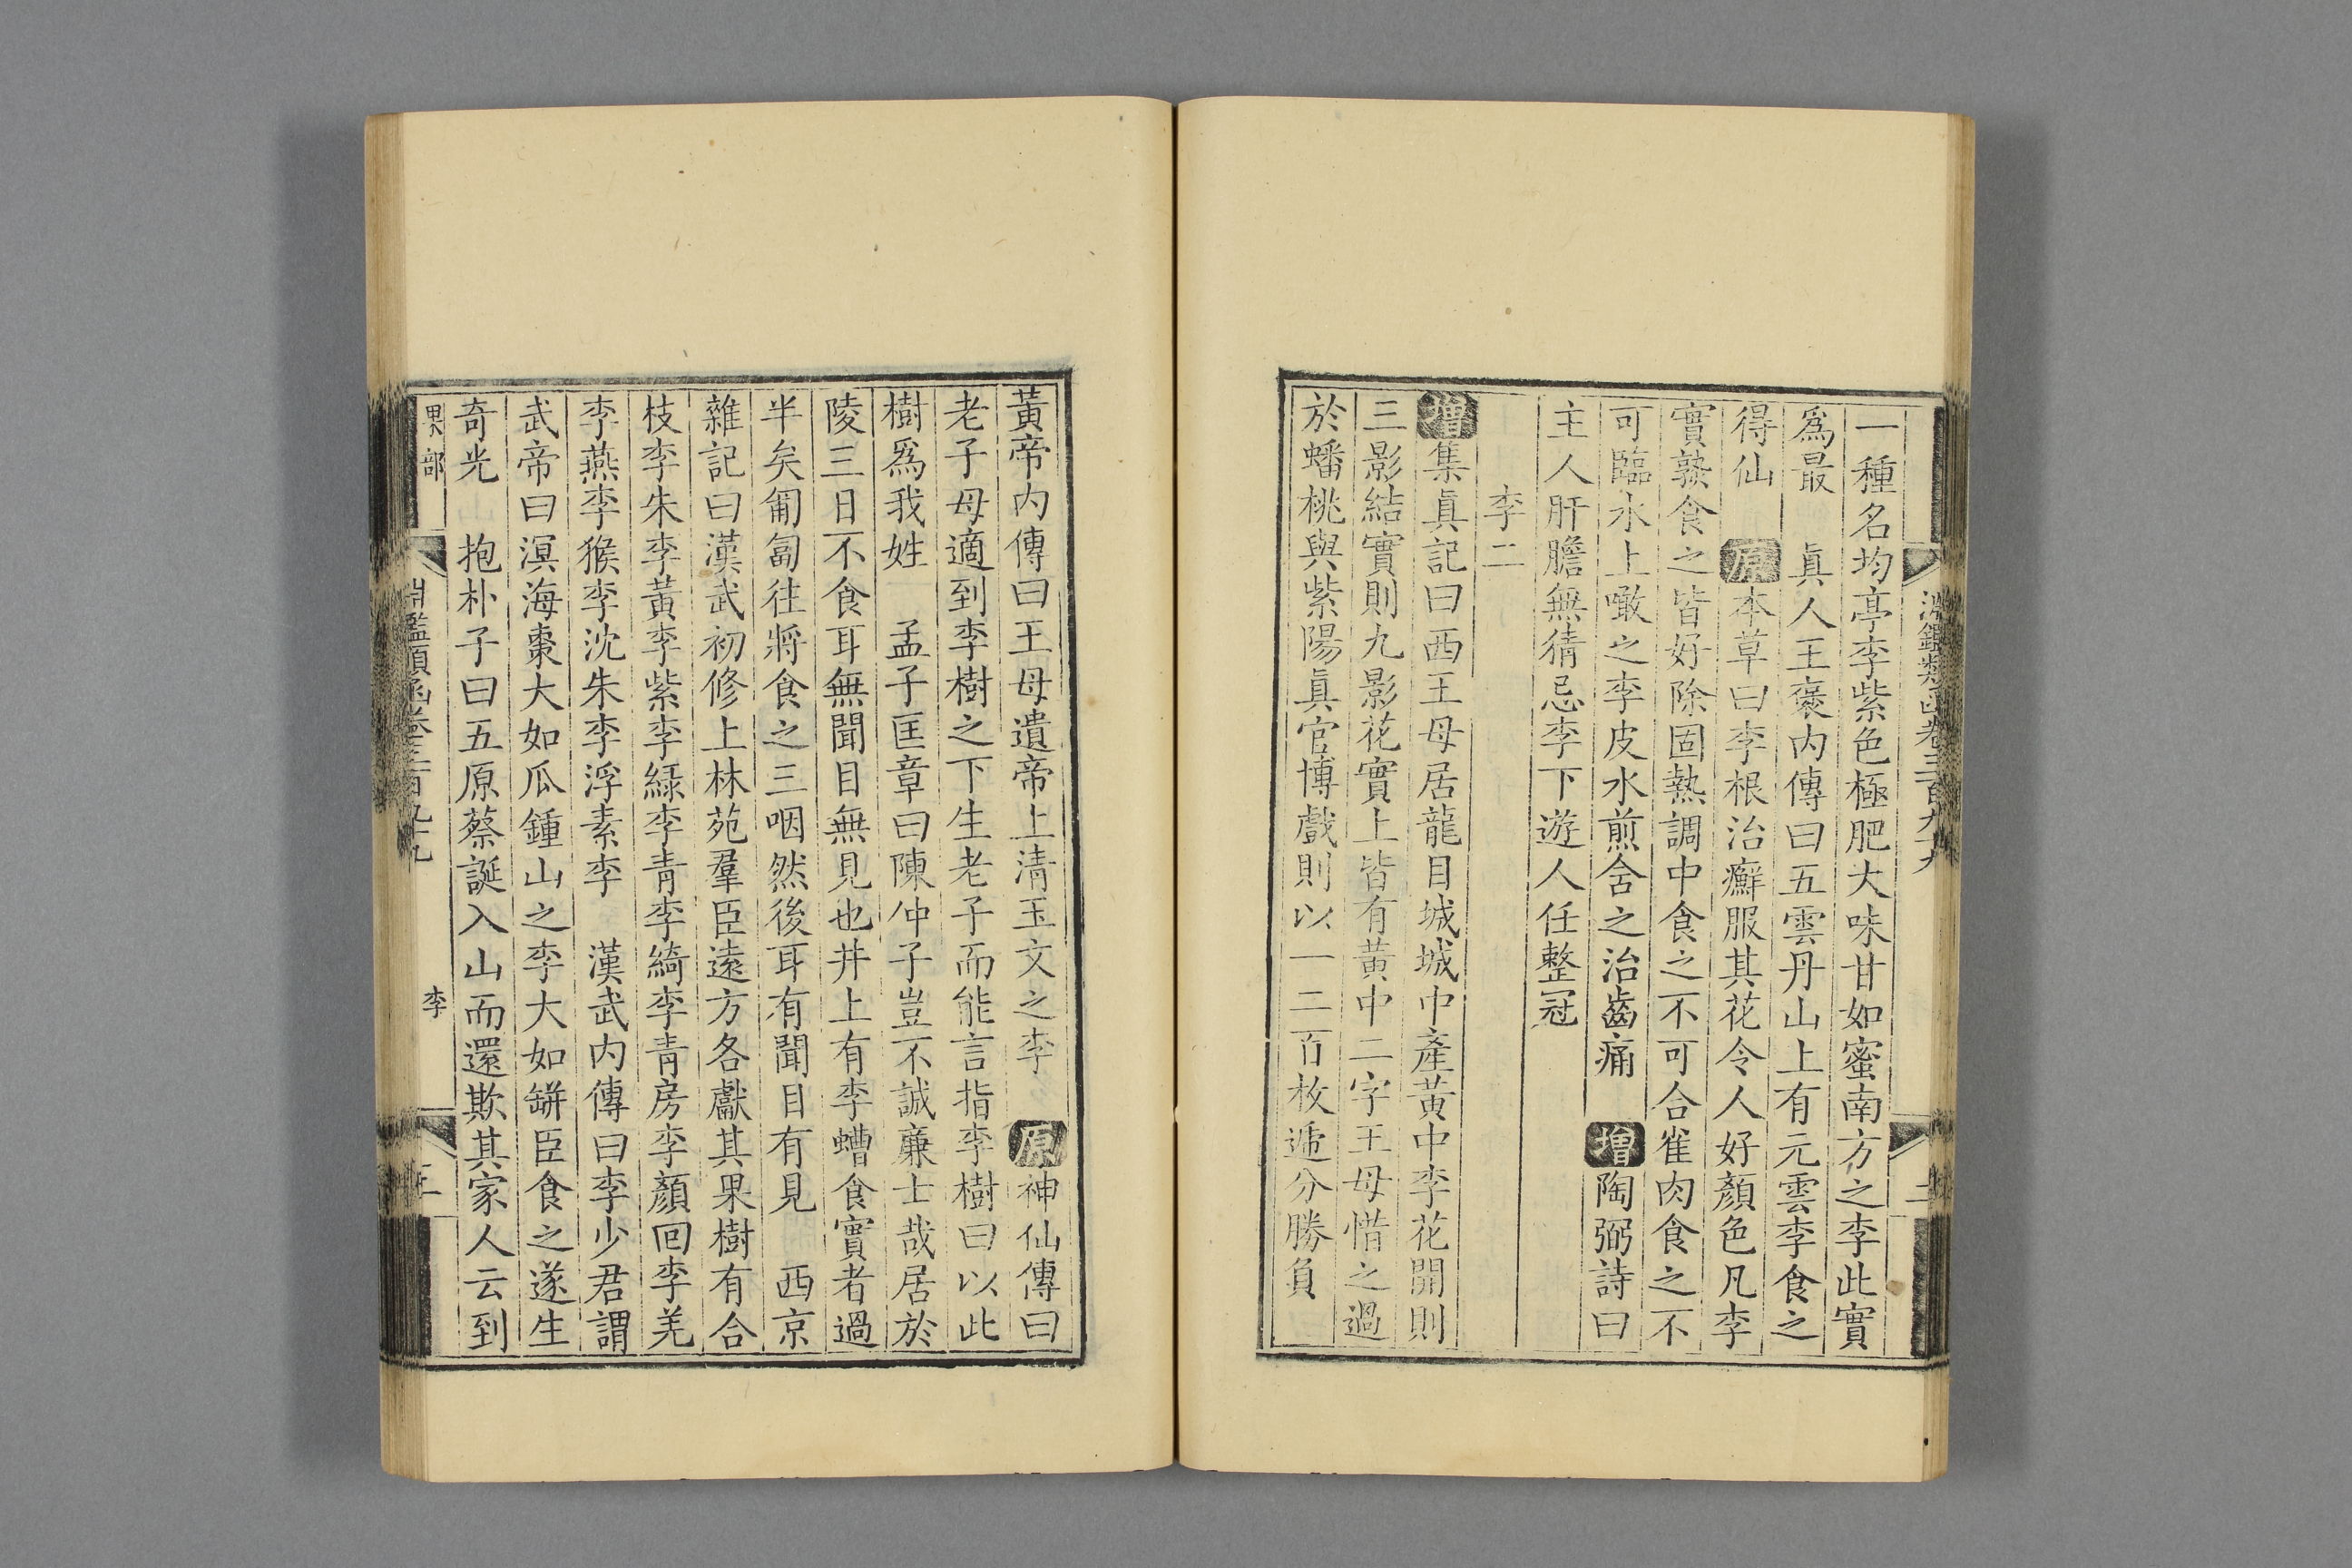 一種名均亭李紫色極肥大味甘如蜜南方之李此實
爲最　眞人王褒內傳曰五雲丹山上有元雲李食之
得仙　原本草曰李根治癬服其花令人好顏色凡李
實熟食之皆好除固熱調中食之不可合雀肉食之不
可臨水上噉之李皮水煎含之治齒痛　增陶弼詩曰
主人肝膽無猜忌李下遊人任整冠
李二
增集眞記曰西王母居龍目城城中產黃中李花開則
三影結實則九影花實上皆有黃中二字王母惜之過
於蟠桃與紫陽眞官博戲則以一二百枚遞分勝負
黃帝內傳曰王母遺帝上清玉文之李　原神仙傳曰
老子母適到李樹之下生老子而能言指李樹曰以此
樹爲我姓　孟子匡章曰陳仲子豈不誠廉士哉居於
陵三日不食耳無聞目無見也井上有李螬食實者過
半矣匍匐往將食之三咽然後耳有聞目有見　西京
雜記曰漢武初修上林苑羣臣遠方各獻其果樹有合
枝李朱李黃李紫李綠李青李綺李青房李顏回李羌
李燕李猴李沈朱李浮素李　漢武內傳曰李少君謂
武帝曰溟海棗大如瓜鍾山之李大如缾臣食之遂生
奇光　抱朴子曰五原蔡誕入山而還欺其家人云到
果部
李